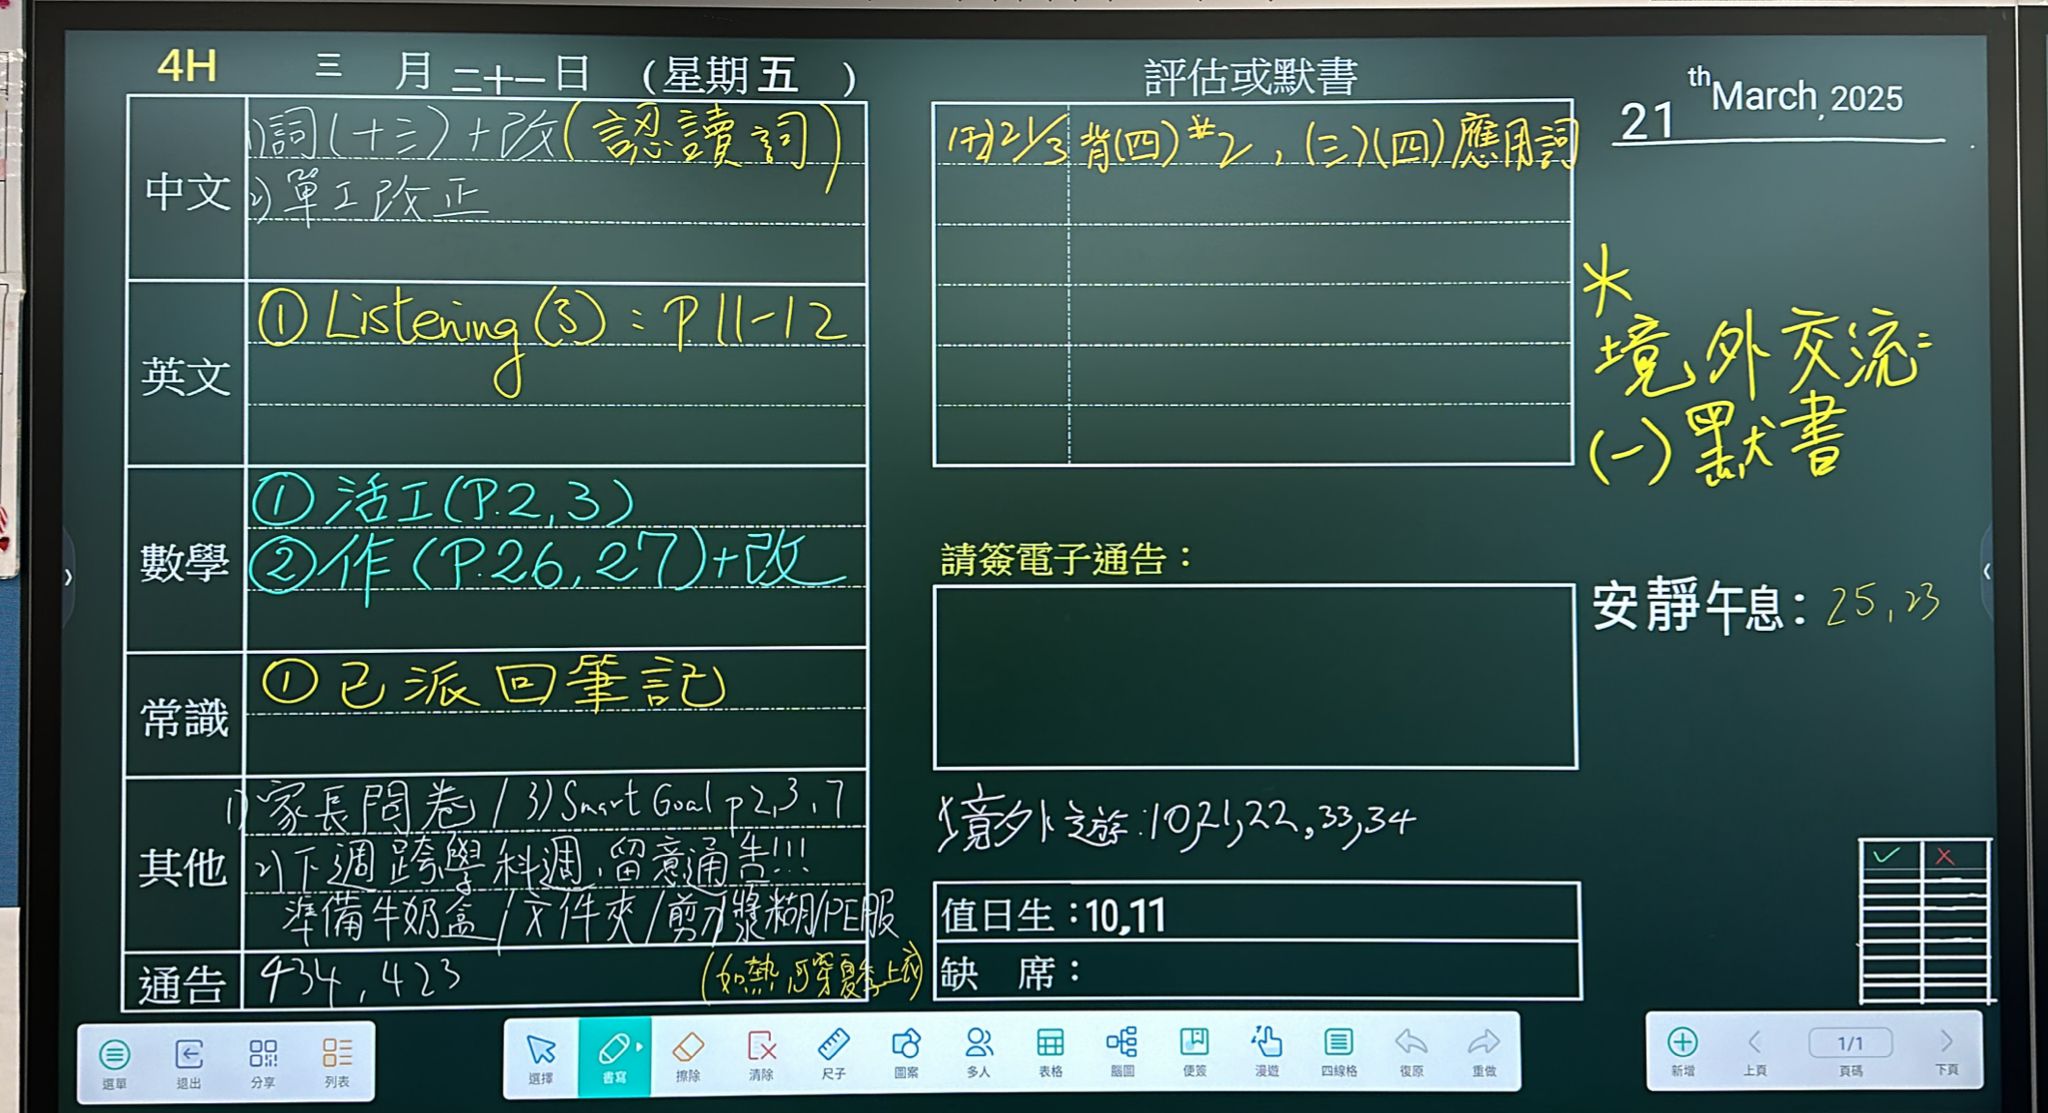 4H 三 月 二十一 日 (星期五)
中文
1)詞(十三)+改(認讀詞)
2)單工改正
英文
① Listening (3) : P.11-12
數學
① 活工(P.2,3)
② 作(P.26,27)+改
常識
① 已派回筆記
其他
1) 家長問卷 / 3) Smart Goal p2,3,7
2) 下週跨學科週,留意通告!!!
準備牛奶盒/文件夾/剪刀漿糊/PE服
(如熱,可穿夏季上衣)
通告
434, 423
評估或默書
21/3 背(四)#2, (三)(四)應用詞
請簽電子通告：
境外遊:10,21,22,33,34
值日生：10,11
缺 席：
21 th March, 2025
*
境外交流:
(一)默書
安靜午息：25,23
✓ ×
選單 退出 分享 列表
選擇 書寫 擦除 清除 尺子 圖案 多人 表格 腦圖 便簽 漫遊 四線格 復原 重做
新增 上頁 1/1 頁碼 下頁